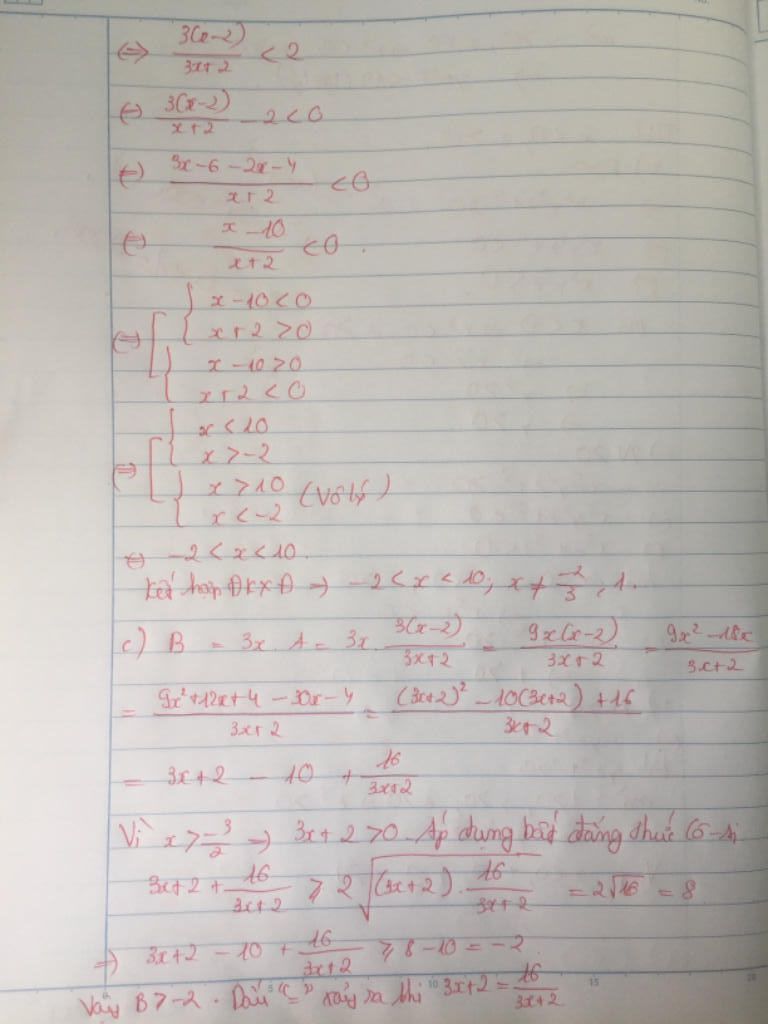 ⇔ 3(x-2)/(3x+2) < 2
⇔ 3(x-2)/(x+2) - 2 < 0
⇔ (3x-6-2x-4)/(x+2) < 0
⇔ (x-10)/(x+2) < 0.
⇔ [ { x-10 < 0
x+2 > 0
{ x-10 > 0
x+2 < 0
⇔ [ { x < 10
x > -2
{ x > 10 (Vô lý)
x < -2
⇔ -2 < x < 10.
Kết hợp ĐKXĐ ⇒ -2 < x < 10; x ≠ -2/3, 1.
c) B = 3x.A = 3x. 3(x-2)/(3x+2) = 9x(x-2)/(3x+2) = (9x²-18x)/(3x+2)
= (9x²+12x+4-30x-4)/(3x+2) = ((3x+2)²-10(3x+2)+16)/(3x+2)
= 3x+2 - 10 + 16/(3x+2)
Vì x > -3/2 ⇒ 3x+2 > 0. Áp dụng bất đẳng thức Cô-si
3x+2 + 16/(3x+2) ⩾ 2√((3x+2).16/(3x+2)) = 2√16 = 8
⇒ 3x+2 - 10 + 16/(3x+2) ⩾ 8-10 = -2
Vậy B ⩾ -2. Dấu "=" xảy ra khi 3x+2 = 16/(3x+2)